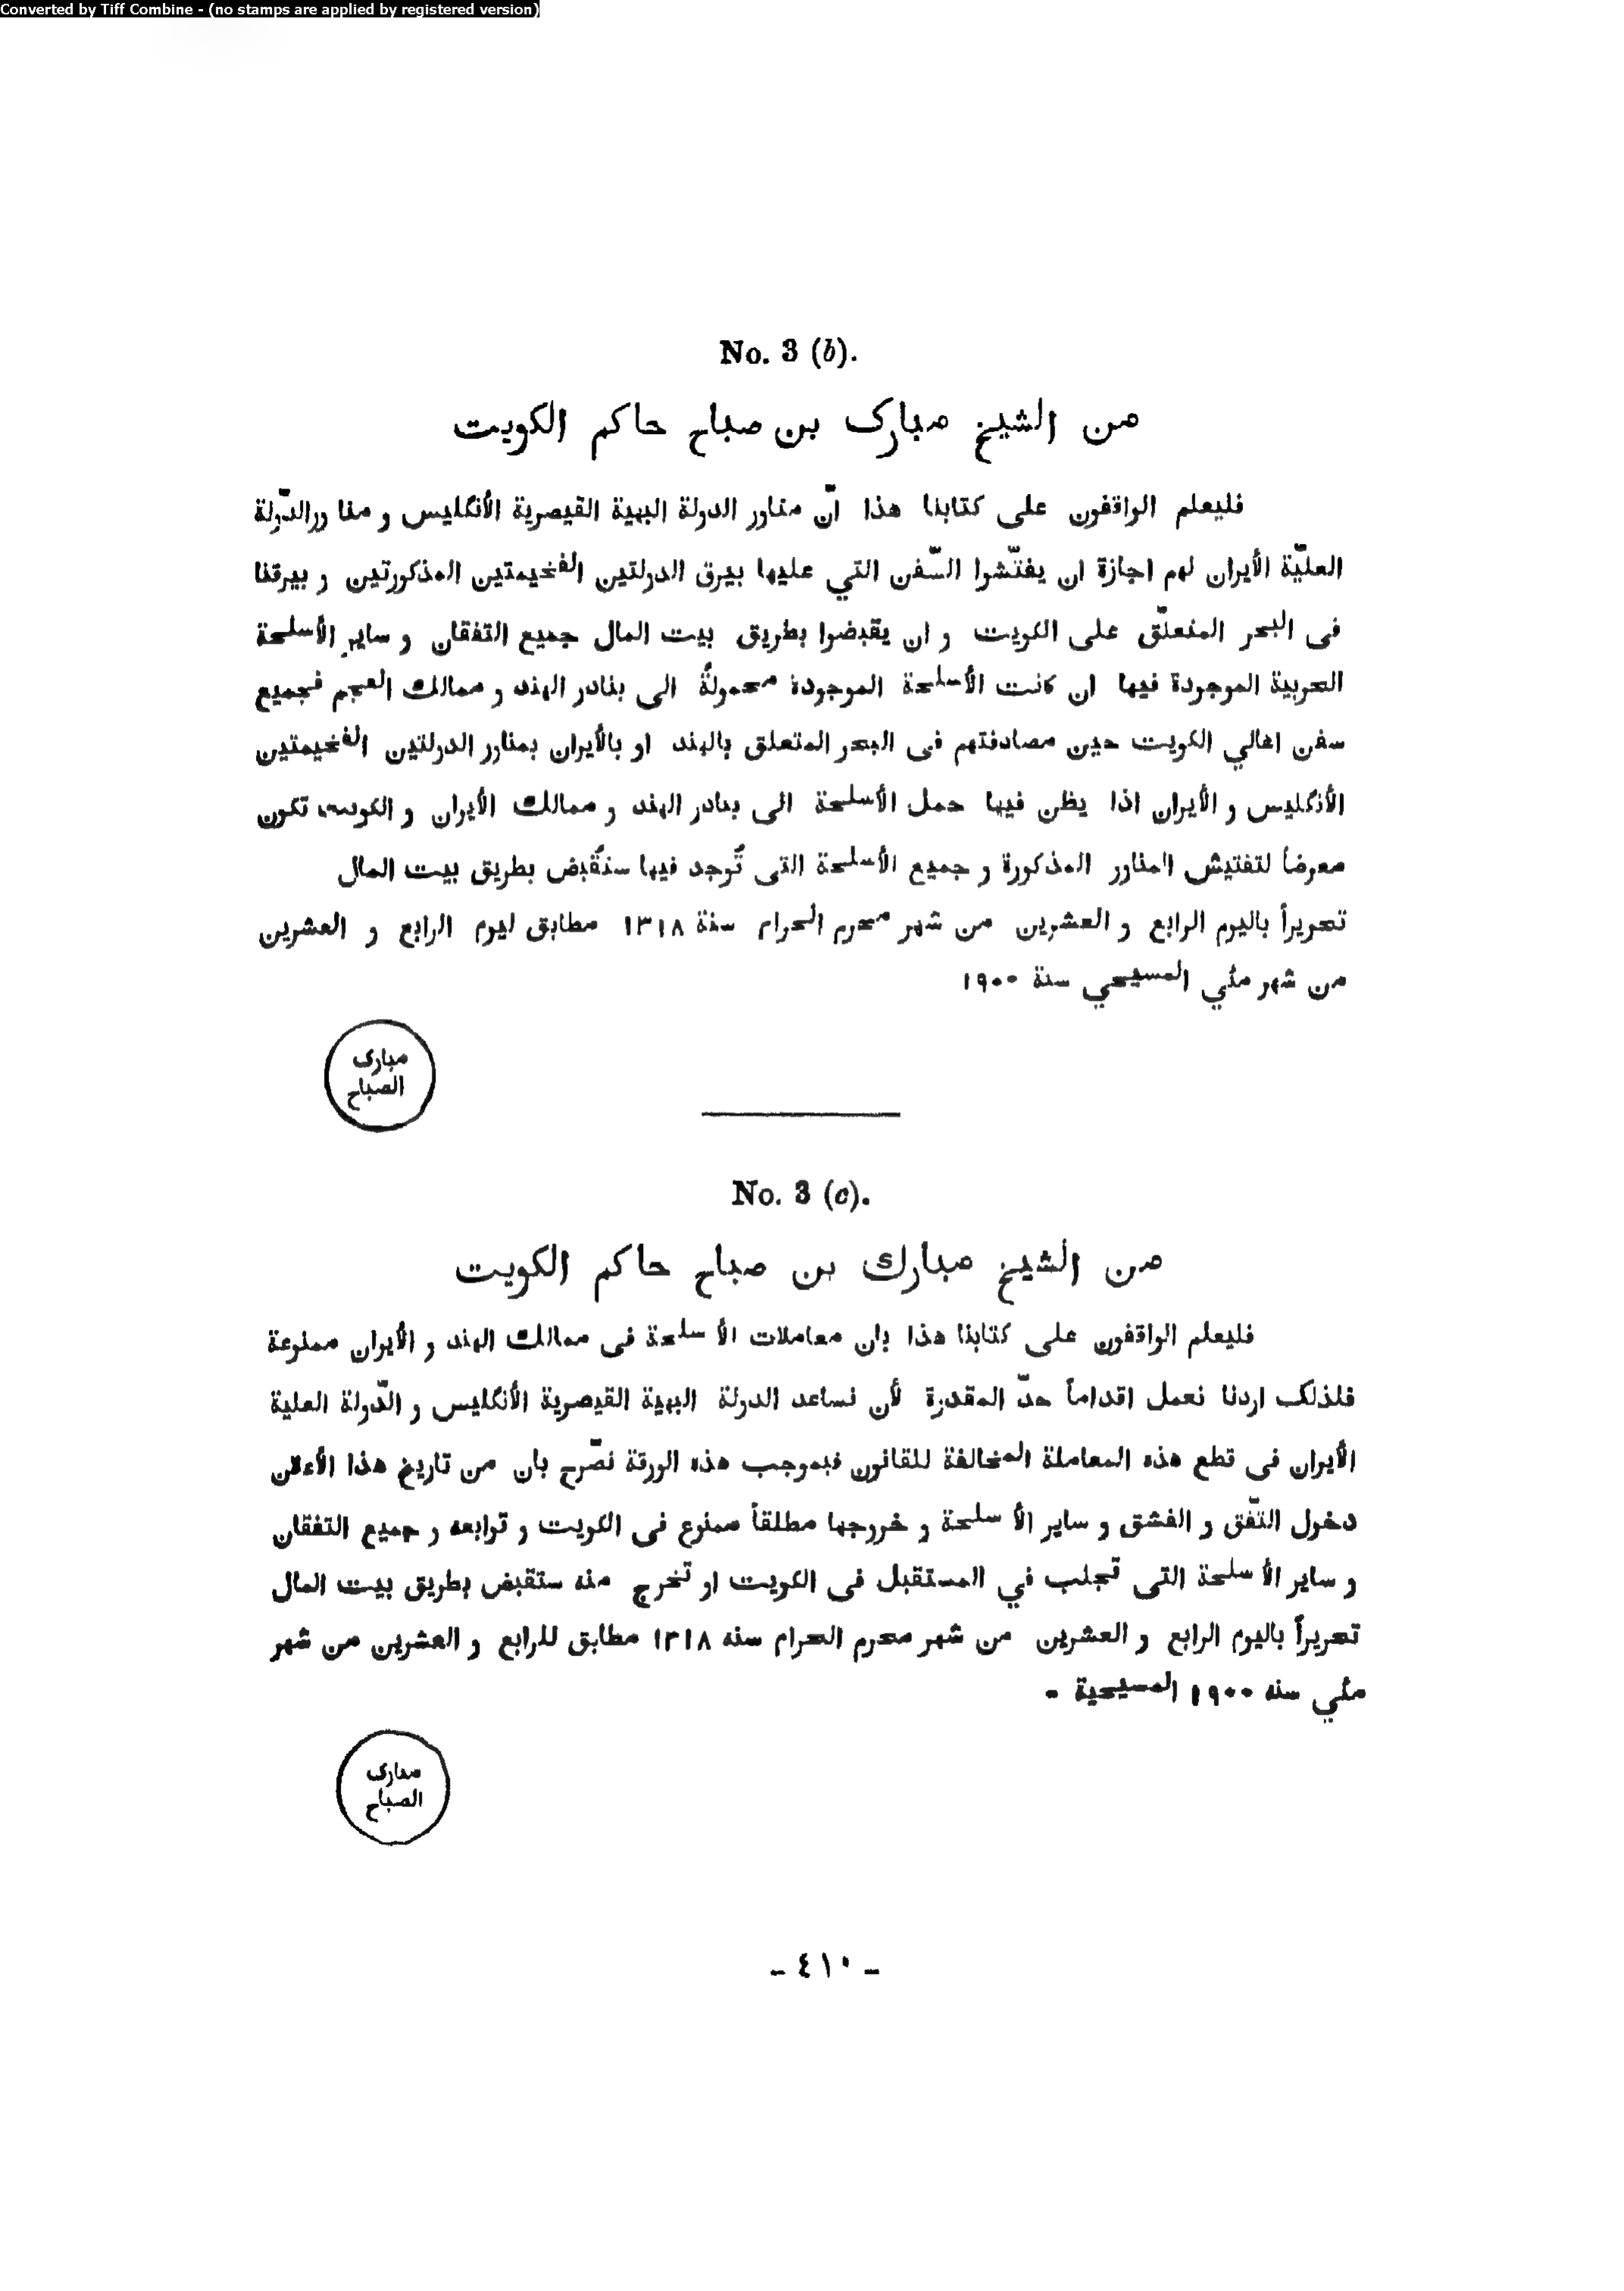 Converted by Tiff Combine - (no stamps are applied by registered version)
No. 3 (b).
من الشيخ مبارک بن صباح حاكم الكويت
فليعلم الواقفون على كتابنا هذا انّ مناور الدولة البهية القيصرية الأنكليس و منا ورالدّولة
العليّة الأيران لهم اجازة ان يفتّشوا السّفن التي عليها بيرق الدولتين الفخيمتين المذكورتين و بيرقنا
فى البحر المتعلّق على الكويت و ان يقبضوا بطريق بيت المال جميع التفقان و ساير الأسلحة
الحربية الموجودة فيها ان كانت الأسلحة الموجودة محمولةً الى بنادر الهند و ممالك العجم فجميع
سفن اهالي الكويت حين مصادفتهم فى البحر المتعلق بالهند او بالأيران بمناور الدولتين الفخيمتين
الأنكليس و الأيران اذا يظن فيها حمل الأسلحة الى بنادر الهند و ممالك الأيران و الكويت تكون
معرضاً لتفتيش المناور المذكورة و جميع الأسلحة التى تُوجد فيها ستُقبض بطريق بيت المال
تحريراً باليوم الرابع و العشرين من شهر محرم الحرام سنة ١٣١٨ مطابق ليوم الرابع و العشرين
من شهر مئي المسيحي سنة ١٩٠٠
مبارک
الصباح
No. 3 (c).
من الشيخ مبارك بن صباح حاكم الكويت
فليعلم الواقفون على كتابنا هذا بان معاملات الأ سلحة فى ممالك الهند و الأيران ممنوعة
فلذلک اردنا نعمل اقداماً حدّ المقدرة لأن نساعد الدولة البهية القيصرية الأنكليس و الدّولة العلية
الأيران فى قطع هذه المعاملة المخالفة للقانون فبموجب هذه الورقة نصّرح بان من تاريخ هذا الأعلان
دخول التّفق و الفشق و ساير الأ سلحة و خروجها مطلقاً ممنوع فى الكويت و توابعه و جميع التفقان
و ساير الأ سلحة التى تجلب في المستقبل فى الكويت او تخرج منه ستقبض بطريق بيت المال
تحريراً باليوم الرابع و العشرين من شهر محرم الحرام سنه ١٣١٨ مطابق للرابع و العشرين من شهر
مئي سنه ١٩٠٠ المسيحية -
مبارک
الصباح
- ٤١٠ -